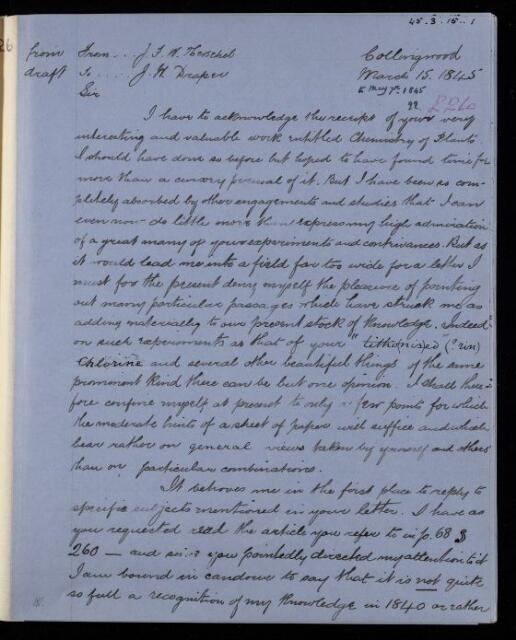 45.3.15..1
from From... J. F. W. Herschel Collingwood
draft to..... J. W. Draper March 15. 1845
Sir to May 7th 1845
I have to acknowledge the receipt of your very
interesting and valuable work entitled Chemistry of Plants
I should have done so before but hoped to have found time for
more than a cursory perusal of it. But I have been so com-
pletely absorbed by other engagements and studies that I can
even now do little more than expressing high admiration
of a great many of your experiments and contrivances. But as
it would lead me into a field far too wide for a letter I
must for the present deny myself the pleasure of pointing
out many particular passages which have struck me as
adding materially to our present stock of knowledge. Indeed
on such experiments as that of your "tithonized" (? rin)
Chlorine and several other beautiful things of the same
prominent kind there can be but one opinion. I shall there-
fore confine myself at present to only a few points for which
the moderate limits of a sheet of paper will suffice and which
bear rather on general views taken by yourself and others
than on particular combinations.
It behoves me in the first place to reply to
specific subjects mentioned in your letter. I have as
you requested read the article you refer to in p. 68 &
260 — and since you pointedly directed my attention to it
I am bound in candour to say that it is not quite
so full a recognition of my knowledge in 1840 or rather